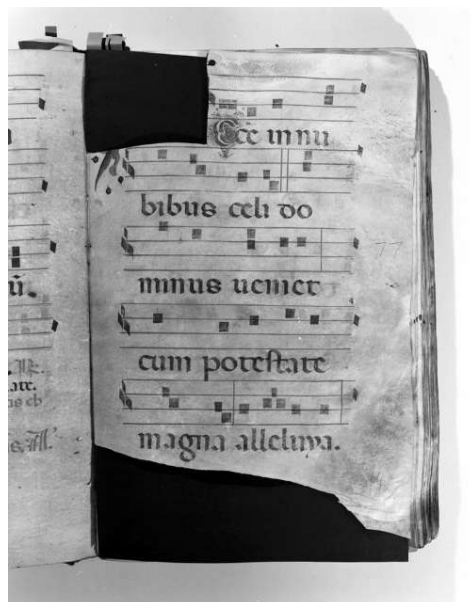 ate.
Ecce in nu
bibus celi do
minus ueniet
cum potestate
magna alleluya.
77